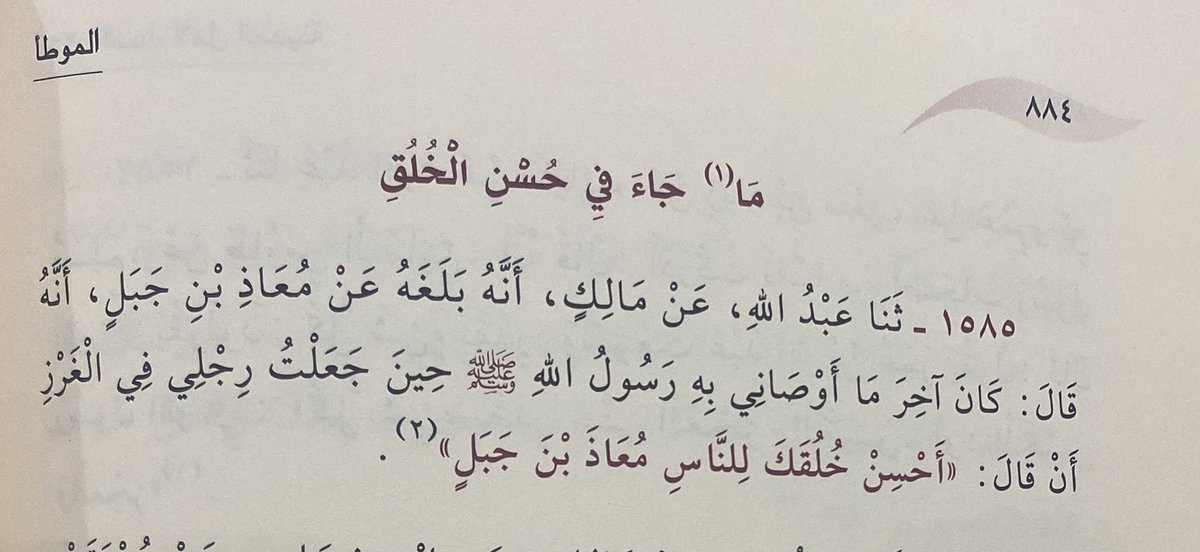 الموطأ
٨٨٤
مَا(١) جَاءَ فِي حُسْنِ الْخُلُقِ
١٥٨٥ ـ ثَنَا عَبْدُ اللهِ، عَنْ مَالِكٍ، أَنَّهُ بَلَغَهُ عَنْ مُعَاذِ بْنِ جَبَلٍ، أَنَّهُ
قَالَ: كَانَ آخِرَ مَا أَوْصَانِي بِهِ رَسُولُ اللهِ ﷺ حِينَ جَعَلْتُ رِجْلِي فِي الْغَرْزِ
أَنْ قَالَ: «أَحْسِنْ خُلُقَكَ لِلنَّاسِ مُعَاذَ بْنَ جَبَلٍ»(٢).